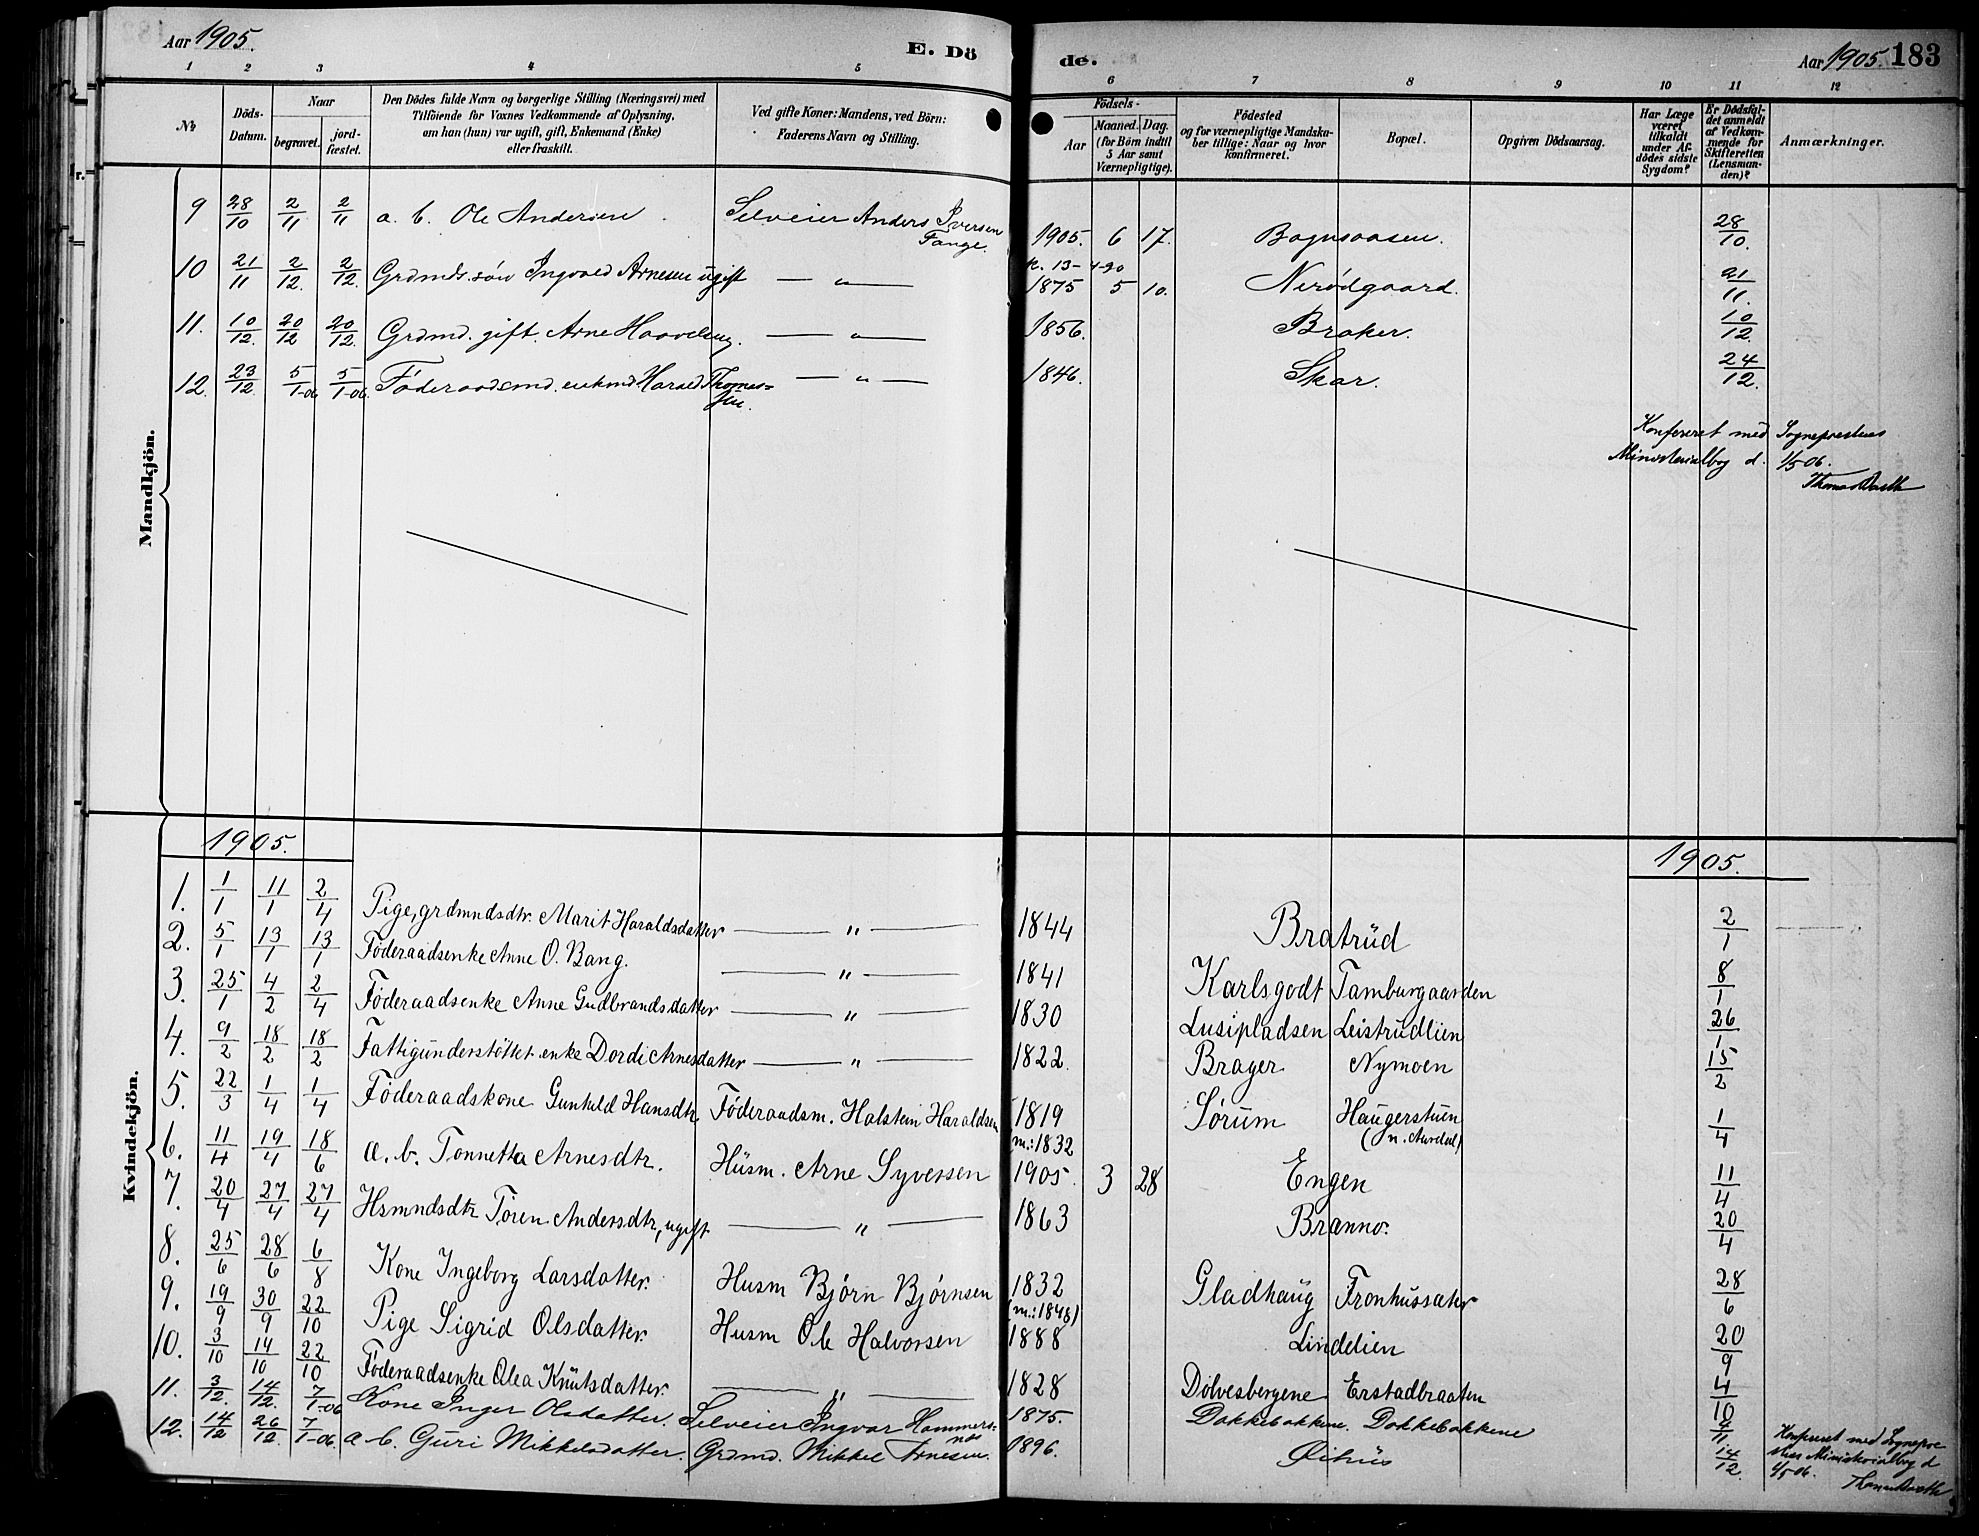 Aar 1905. E. Dö
de. Aar 1905. 183
1 2 3 4 5 6 7 8 9 10 11 12
№
Döds-Datum.
Naar
begravet. jord-fæstet.
Den Dödes fulde Navn og borgerlige Stilling (Næringsvei) med
Tilföiende for Voxnes Vedkommende af Oplysning,
om han (hun) var ugift, gift, Enkemand (Enke)
eller fraskilt.
Ved gifte Koner: Mandens, ved Börn:
Faderens Navn og Stilling.
Födsels-
Aar
Maaned. Dag.
(for Börn indtil
5 Aar samt
Værnepligtige).
Födested
og for værnepligtige Mandska-
ber tillige: Naar og hvor
konfirmeret.
Bopæl.
Opgiven Dödsaarsag.
Har Læge
været
tilkaldt
under Af-
dödes sidste
Sygdom?
Er Dödsfal-
det anmeldt
af Vedkom-
mende for
Skifteretten
(Lensman-
den)?
Anmærkninger.
Mandkjön.
9 28/10 2/11 2/11 a. b. Ole Andersen. Selveier Anders Iversen Fange. 1905. 6 17. Bagnsaasen. 28/10.
10 21/11 2/12. 2/12. Grdmds. sön Ingvald Arnesen ugift — " — k. 13-4-90 1875 5 10. Nerödgaard. 21/11.
11. 10/12. 20/12 20/12. Grdmd. gift. Arne Haavelsen. — " — 1856. Braker. 10/12.
12. 23/12. 5/1-06 5/1-06. Föderaadsmd. enkmd Harald Thomes-sen. — " — 1846. Skar. 24/12.
Konfereret med Sogneprestens
Ministerialbog d. 1/5 06.
Thomas Barth
Kvindekjön.
1905. 1905.
1. 1/1 11/1 2/4 Pige, grdmndsdtr. Marit Haraldsdatter — " — 1844 Bratrüd 2/1
2. 5/1 13/1 13/1 Föderaadsenke Anne O. Bang. — " — 1841 Karlsgodt Tamburgaarden 8/1
3. 25/1 4/2 2/4 Föderaadsenke Anne Gudbrandsdatter — " — 1830 Lusipladsen Leistrudlien 26/1
4. 9/2 18/2 18/2 Fattigunderstöttet enke Dordi Arnesdatter — " — 1822. Brager Nymoen 15/2
5. 22/3 1/4 1/4 Föderaadskone Gunhild Hansdtr Föderaadsm. Halstein Haraldsen 1819 (m.: 1832 Sørum Haugerstuen (n. Aurdal) 1/4
6. 11/4 19/4 18/6 a. b. Tonnetta Arnesdtr. Hüsm. Arne Syversen 1905 3 28 Engen 11/4
7. 20/4 27/4 27/4 Hsmndsdtr Tören Andersdtr, ugift — " — 1863 Branno. 20/4
8. 25/6 28/6 6/8 Kone Ingeborg Larsdatter. Husm Björn Björnsen 1832 (m.: 1848) Gladhaüg Fronhussæter 28/6
9. 19/9 30/9 22/10 Pige Sigrid Olsdatter. Husm Ole Halvorsen 1888 Lindelien 20/9
10. 3/10 14/10 22/10 Föderaadsenke Olea Knütsdatter. — " — 1828 Dölvesbergene Erstadbraaten 4/10
11. 3/12. 14/12. 7/1-06 Kone Inger Olsdatter. Selveier Ingvar Hommers-næs 1875. Dokkebakkene. Dokkebakkene 4/11
12. 14/12 26/12. 7/1-06. a. b. Guri Mikkelsdatter. Grdmd. Mikkel Arnesen. 1896. Øihüs 14/12.
Konfereret med Sognepre-
stens Ministerialbog d
1/5 06.
Thomas Barth